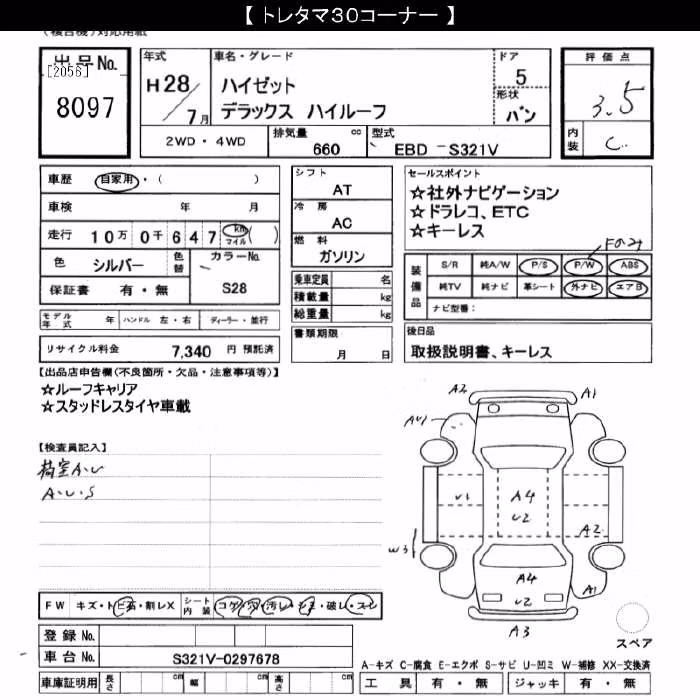 【 トレタマ30コーナー 】
出品No.
[2056]
8097
年式
H28
7月
車名・グレード
ハイゼット
デラックス ハイルーフ
ドア
5
形状
バン
評価点
3.5
内装
C
2WD・4WD
排気量 cc
660
型式
EBD -S321V
車歴 自家用・( )
車検 年 月
走行 10万 0千 6 4 7 km マイル ( )
色 シルバー 色替 カラーNo.
S28
保証書 有・無
シフト
AT
冷房
AC
燃料
ガソリン
乗車定員 名
積載量 kg
総重量 kg
セールスポイント
☆社外ナビゲーション
☆ドラレコ、ETC
☆キーレス
装備品
S/R 純A/W P/S P/W ABS
純TV 純ナビ 革シート 外ナビ エアB
ナビ型番：
モデル年式 年 ハンドル 左・右 ディーラー・並行
リサイクル料金 7,340 円 預託済
書類期限
月 日
後日品
取扱説明書、キーレス
【出品店申告欄(不良箇所・欠品・注意事項等)】
☆ルーフキャリア
☆スタッドレスタイヤ車載
【検査員記入】
荷室A・U
A・U・S
A2
A1
AU1
U1
A4
U2
A2
W3
A4
U2
A1
A3
スペア
FW キズ・トビ石・割レX シート内装 コゲ・穴・汚レ・シミ・破レ・スレ
登録No.
車台No. S321V-0297678
車庫証明用 長さ cm 幅 cm 高さ cm
A-キズ C-腐食 E-エクボ S-サビ U-凹ミ W-補修 XX-交換済
工具 有・無 ジャッキ 有・無